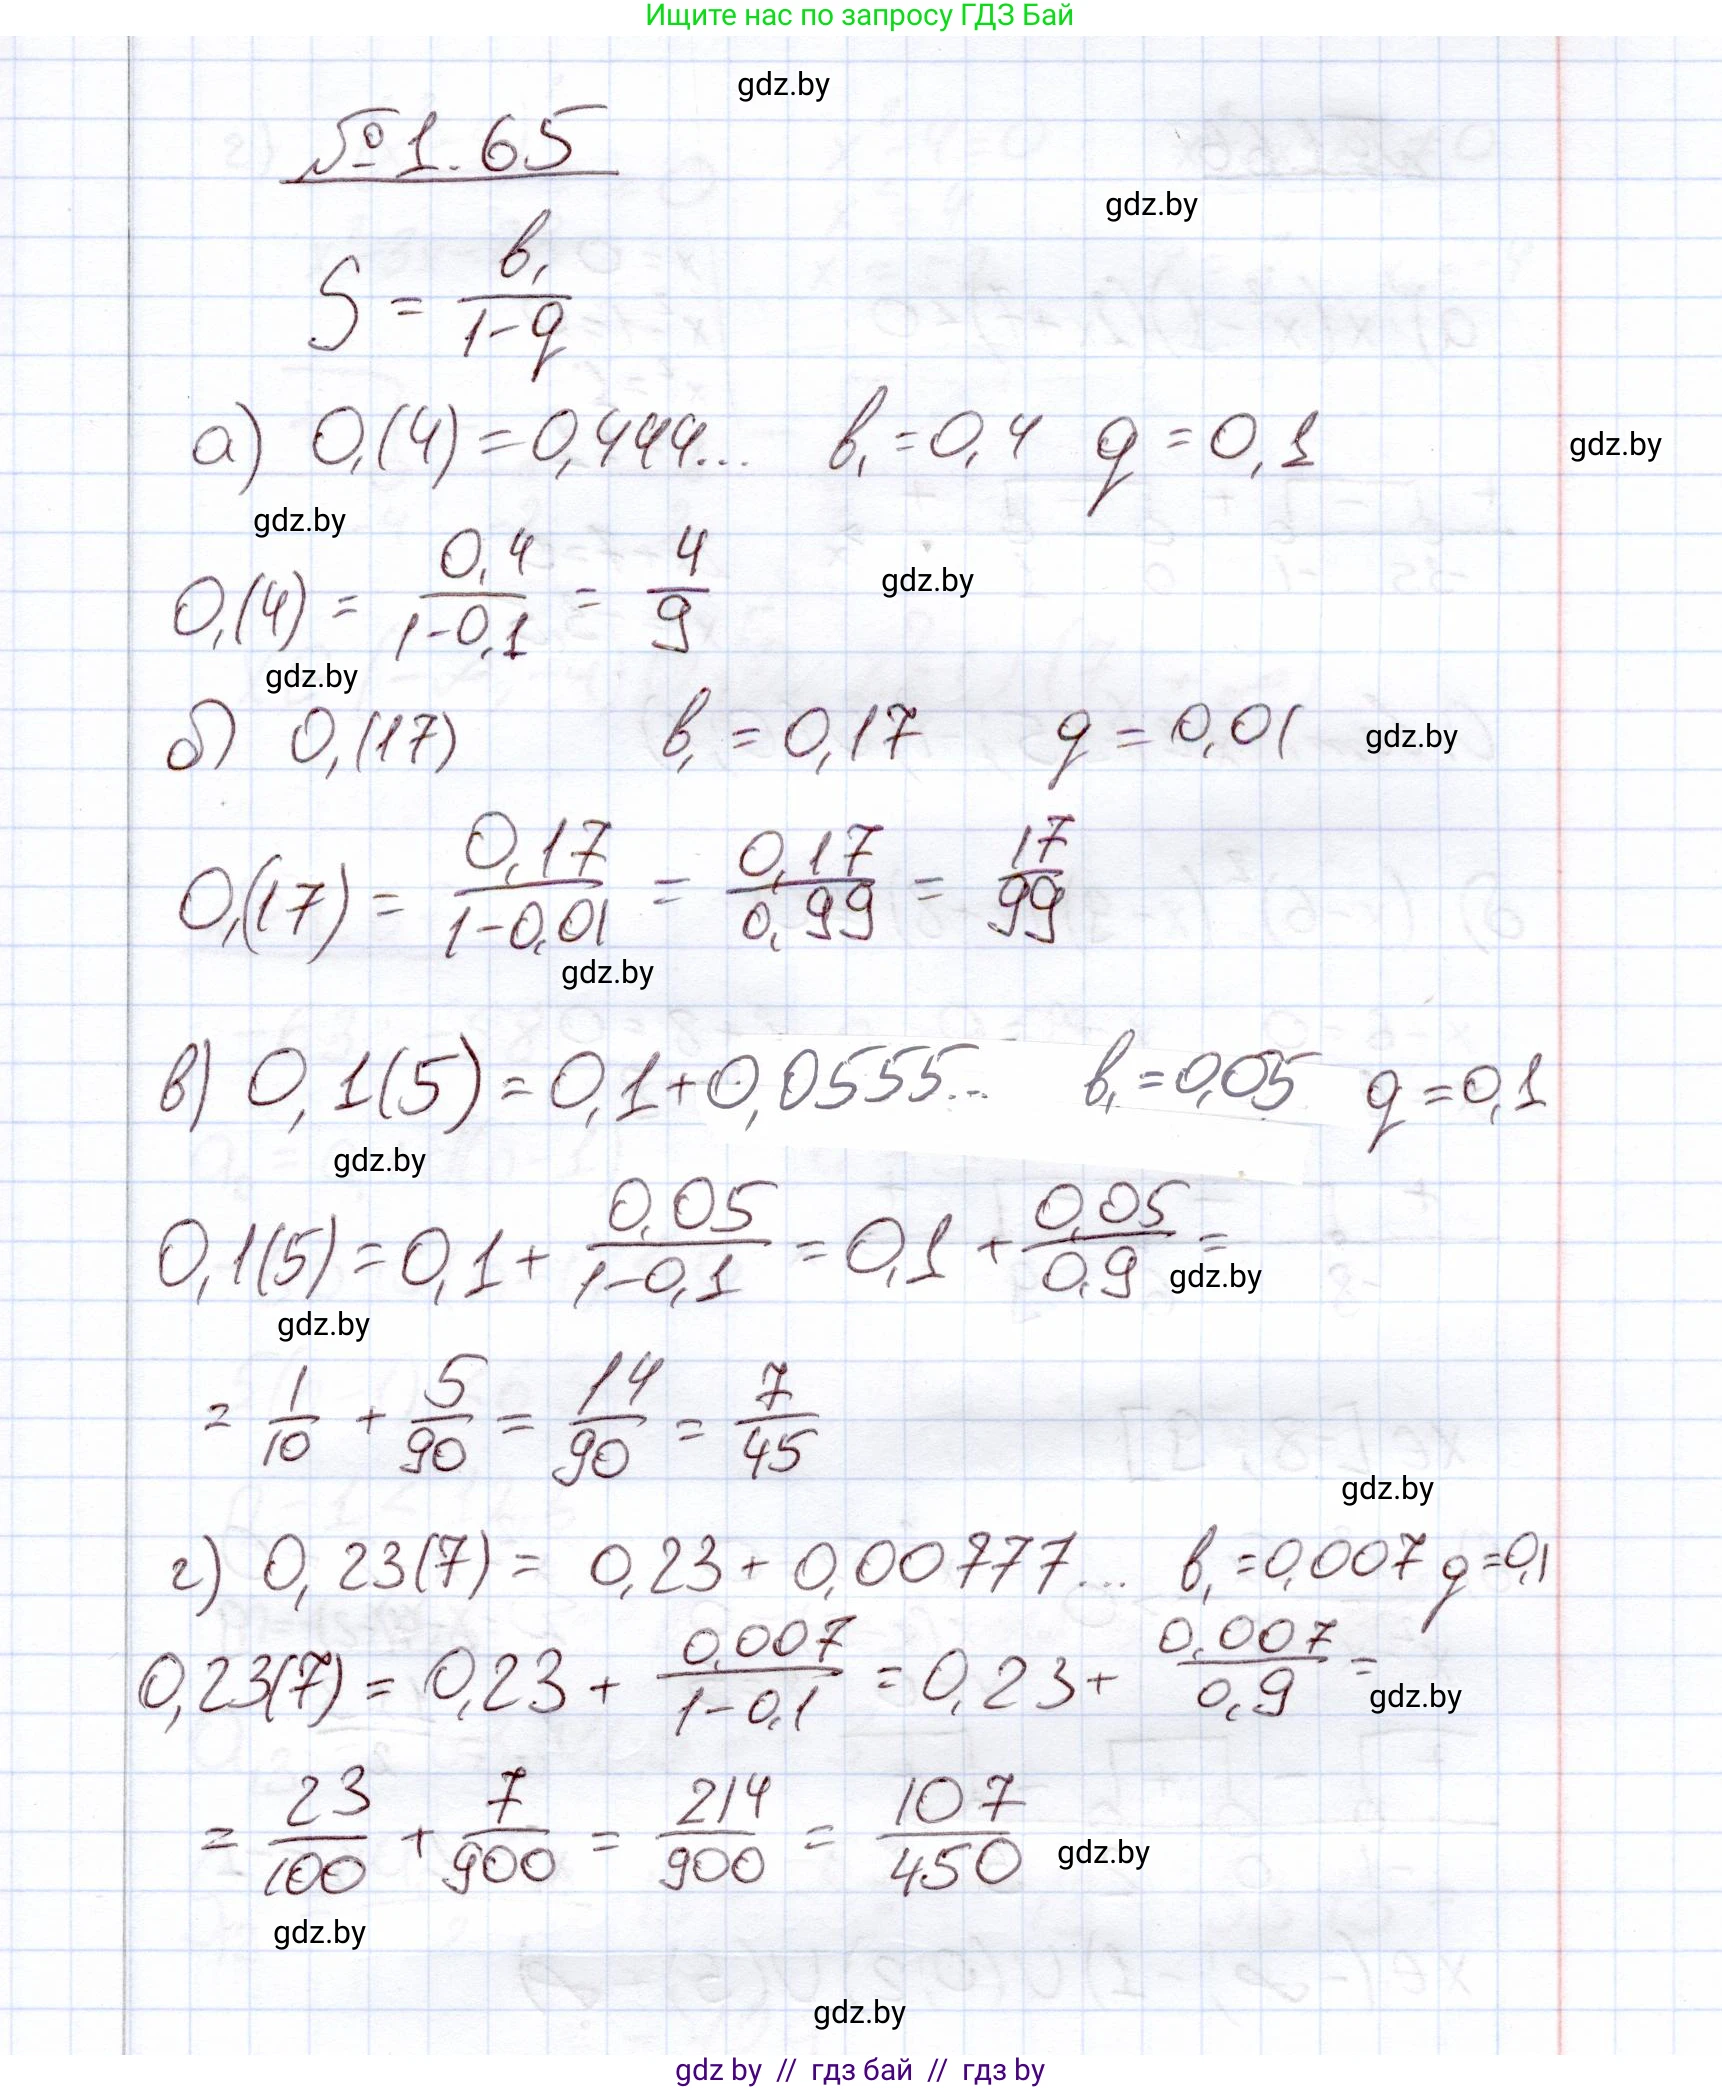 Ищите нас по запросу ГДЗ Бай
gdz.by
№ 1.65
gdz.by
S = b₁/(1-q)
а) 0,(4) = 0,444... b₁ = 0,4 q = 0,1
gdz.by
gdz.by
0,(4) = 0,4/(1-0,1) = 4/9
gdz.by
gdz.by
б) 0,(17) b₁ = 0,17 q = 0,01
gdz.by
0,(17) = 0,17/(1-0,01) = 0,17/0,99 = 17/99
gdz.by
в) 0,1(5) = 0,1 + 0,0555... b₁ = 0,05 q = 0,1
gdz.by
0,1(5) = 0,1 + 0,05/(1-0,1) = 0,1 + 0,05/0,9 =
gdz.by
gdz.by
= 1/10 + 5/90 = 14/90 = 7/45
gdz.by
г) 0,23(7) = 0,23 + 0,00777... b₁ = 0,007 q = 0,1
0,23(7) = 0,23 + 0,007/(1-0,1) = 0,23 + 0,007/0,9 =
gdz.by
= 23/100 + 7/900 = 214/900 = 107/450
gdz.by
gdz.by
gdz.by
gdz by // гдз бай // гдз by